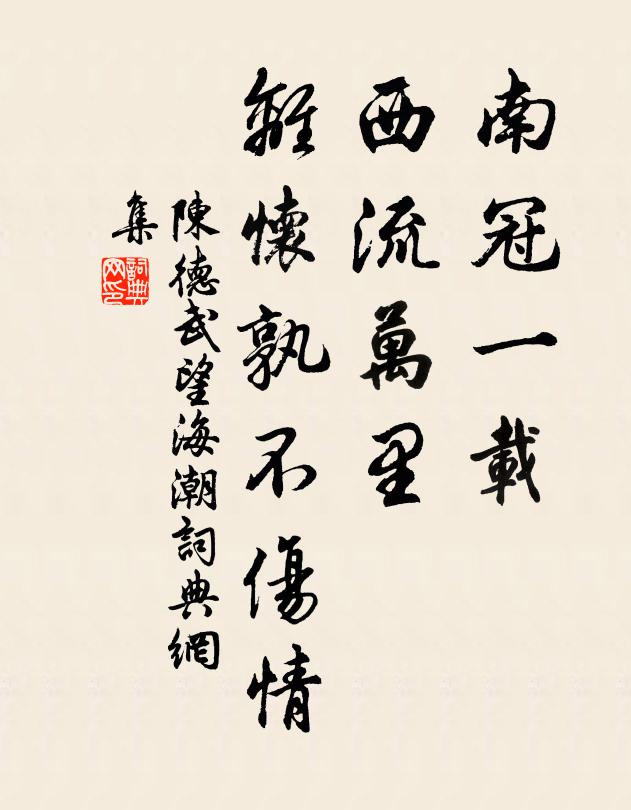 南冠一載
西流萬里
離懷孰不傷情
陳德武望海潮詞典網
集
詞典
网印